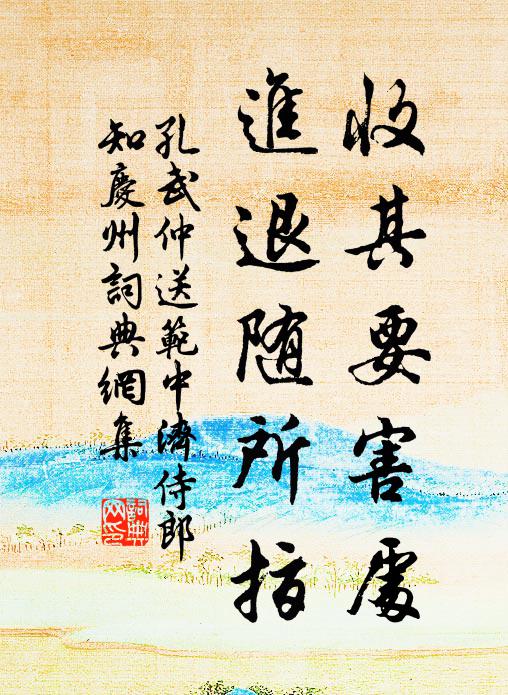 收其要害處
進退随所指
孔武仲送範中濟侍郎
知慶州詞典網集
詞典